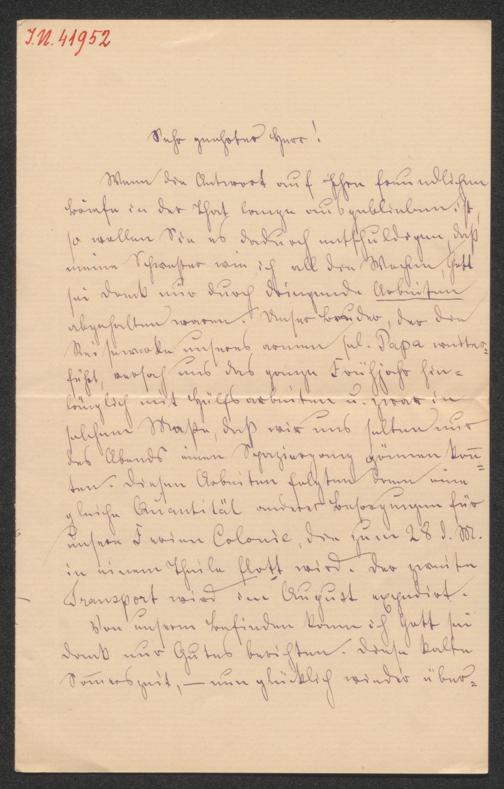 I.N. 41952
Sehr geehrter Herr!
Wenn die Antwort auf Ihre freundlichen
Briefe in der That lange ausgeblieben ist,
so wollen Sie es dadurch entschuldigen, daß
meine Schwester wie ich all die Wochen, Gott
sei Dank nur durch dringende Arbeiten
abgehalten waren. Unser Bruder, der die
Reisewerke unseres armen sel. Papa weiter-
führt, versah uns das ganze Frühjahr hin-
länglich mit Hülfsarbeiten u. zwar in
solchem Maße, daß wir uns selten nur
des Abends einen Spaziergang gönnen kon̄-
ten. Diesen Arbeiten folgten dann eine
gleiche Quantität anderer Besorgungen für
unsere Ferien Colonie, die zum 28 d. M.
in einem Theile flott wird. Der zweite
Transport wird im August expedirt.
Von unserm Befinden kann ich Gott sei
dank nur Gutes berichten. Diese kalte
Som̄erszeit, – nun glücklich wieder über-